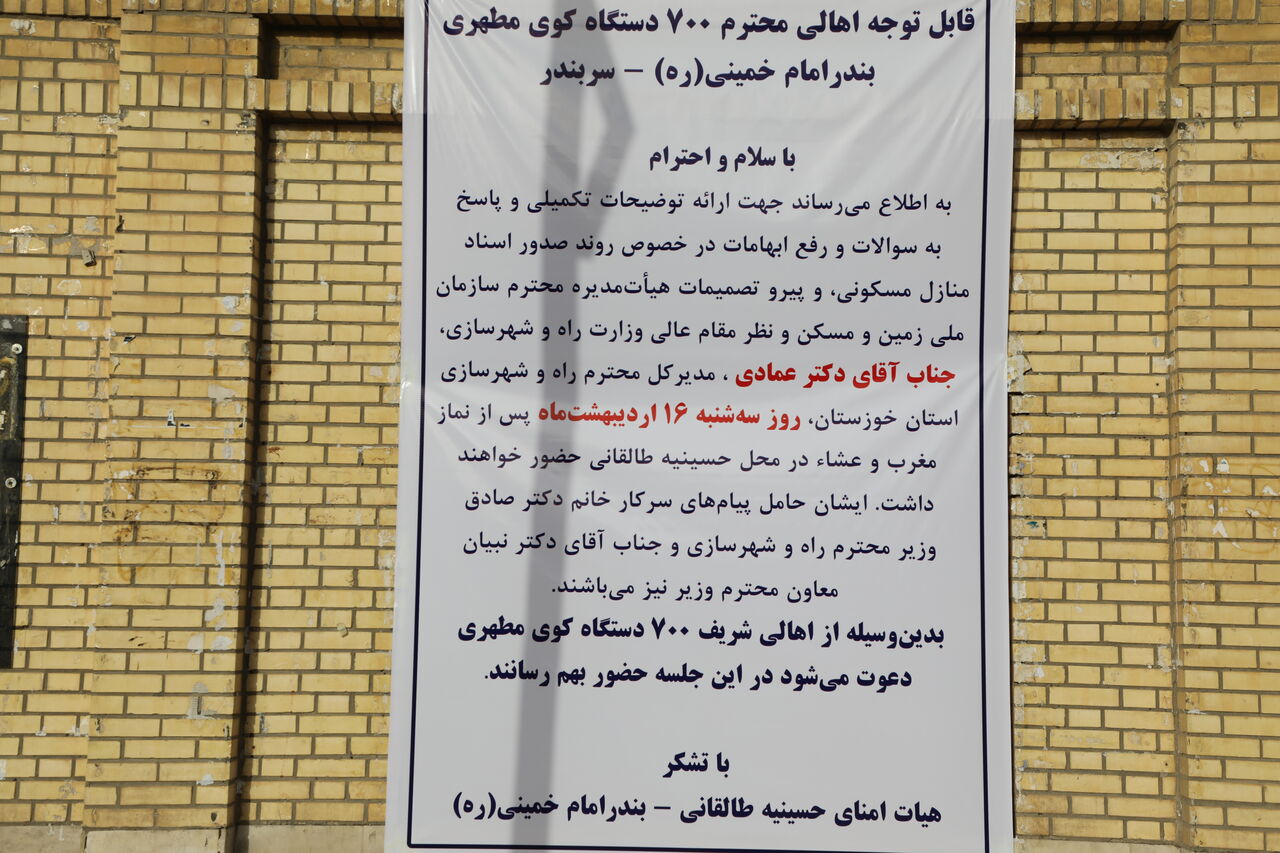 قابل توجه اهالی محترم ۷۰۰ دستگاه کوی مطهری
بندرامام خمینی(ره) – سربندر
با سلام و احترام
به اطلاع می‌رساند جهت ارائه توضیحات تکمیلی و پاسخ
به سوالات و رفع ابهامات در خصوص روند صدور اسناد
منازل مسکونی، و پیرو تصمیمات هیأت‌مدیره محترم سازمان
ملی زمین و مسکن و نظر مقام عالی وزارت راه و شهرسازی،
جناب آقای دکتر عمادی ، مدیرکل محترم راه و شهرسازی
استان خوزستان، روز سه‌شنبه ۱۶ اردیبهشت‌ماه پس از نماز
مغرب و عشاء در محل حسینیه طالقانی حضور خواهند
داشت. ایشان حامل پیام‌های سرکار خانم دکتر صادق
وزیر محترم راه و شهرسازی و جناب آقای دکتر نبیان
معاون محترم وزیر نیز می‌باشند.
بدین‌وسیله از اهالی شریف ۷۰۰ دستگاه کوی مطهری
دعوت می‌شود در این جلسه حضور بهم رسانند.
با تشکر
هیات امنای حسینیه طالقانی – بندرامام خمینی(ره)